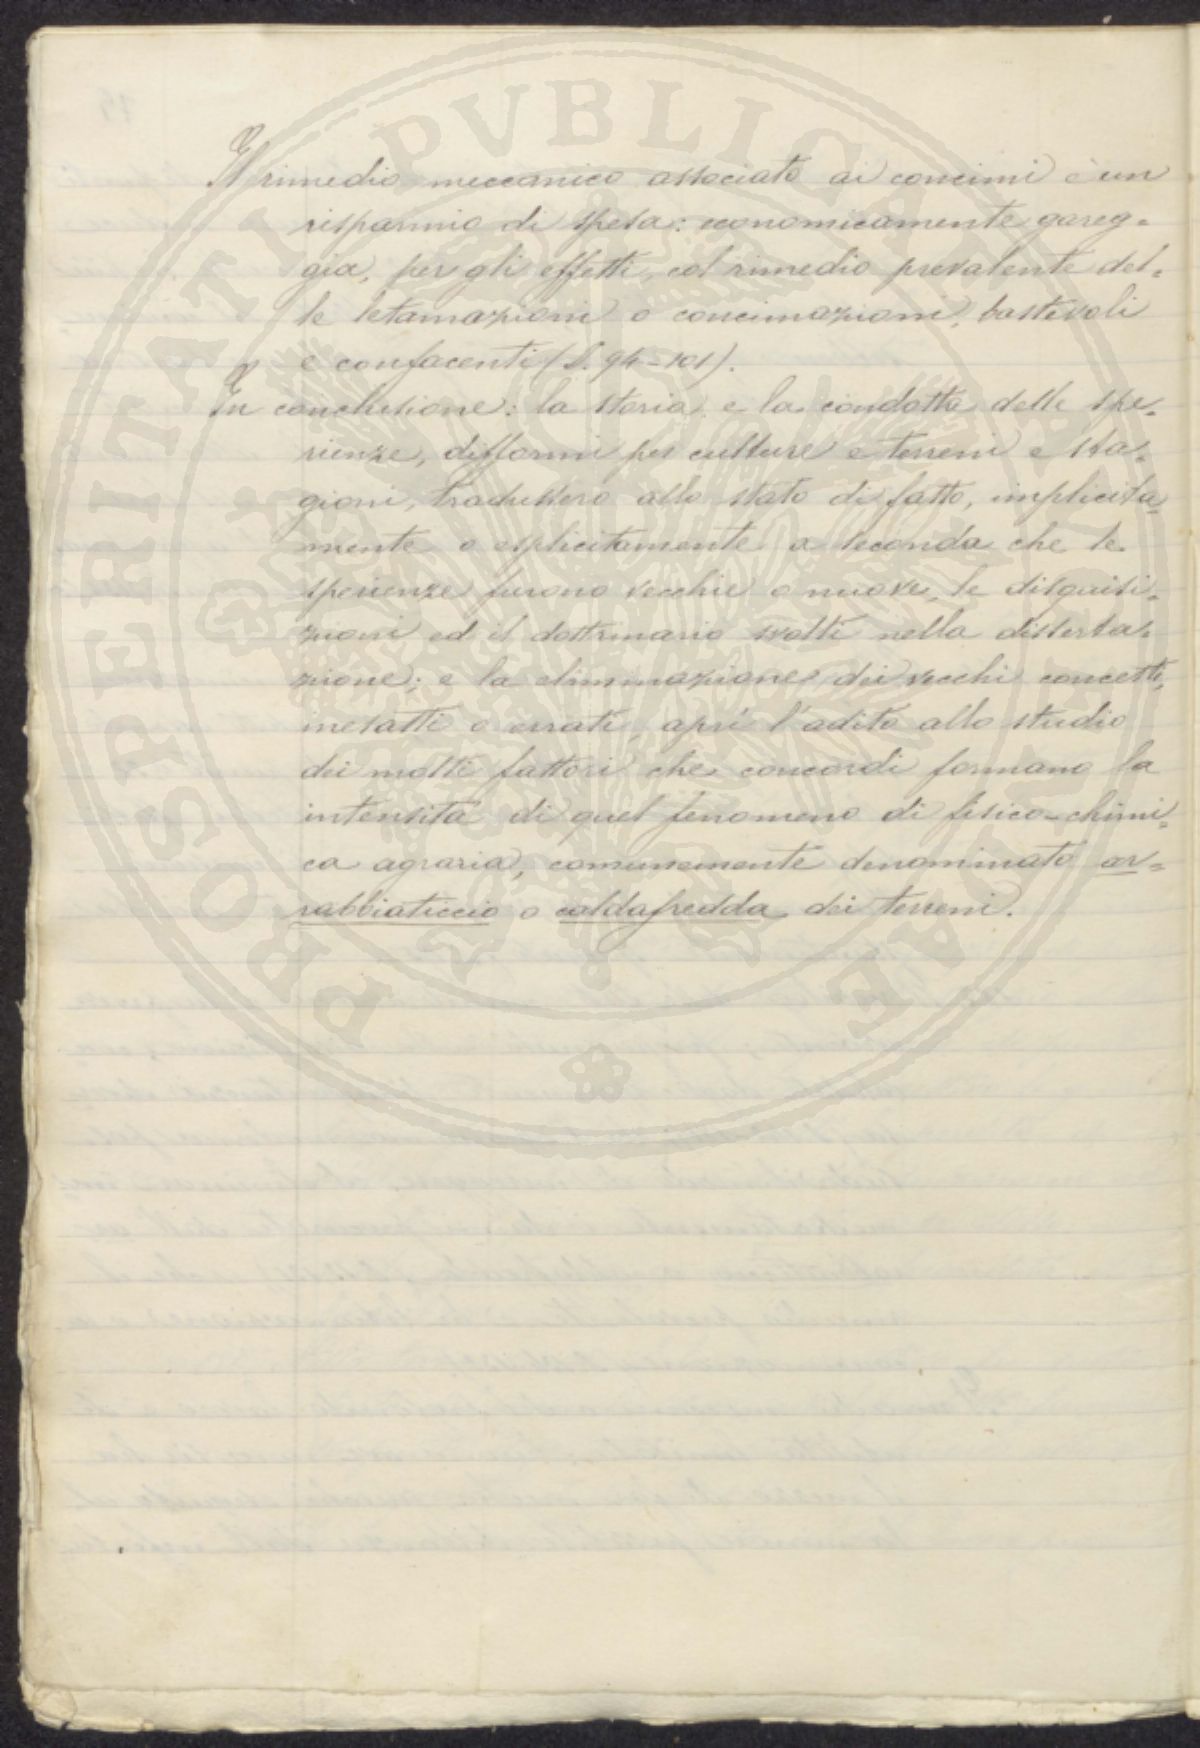 Il rimedio meccanico associato ai concimi è un
risparmio di spesa: economicamente gareg=
gia, per gli effetti, col rimedio prevalente del=
le letamazioni o concimazioni, bastevoli
e confacenti (S. 94-101).
In conclusione: la storia e la condotta delle spe=
rienze, difformi per culture e terreni e sta=
gioni, tradussero allo stato di fatto, implicita=
mente o esplicitamente a seconda che le
sperienze furono vecchie o nuove, le disquisi=
zioni ed il dottrinario svolti nella disserta=
zione; e la eliminazione dei vecchi concetti,
inesatti o errati, aprì l'adito allo studio
dei molti fattori che concordi formano la
intensità di quel fenomeno di fisico-chimi=
ca agraria, comunemente denominato ar=
rabbiaticcio o caldafredda dei terreni.
PROSPERITATI PVBLICAE AVGENDAE